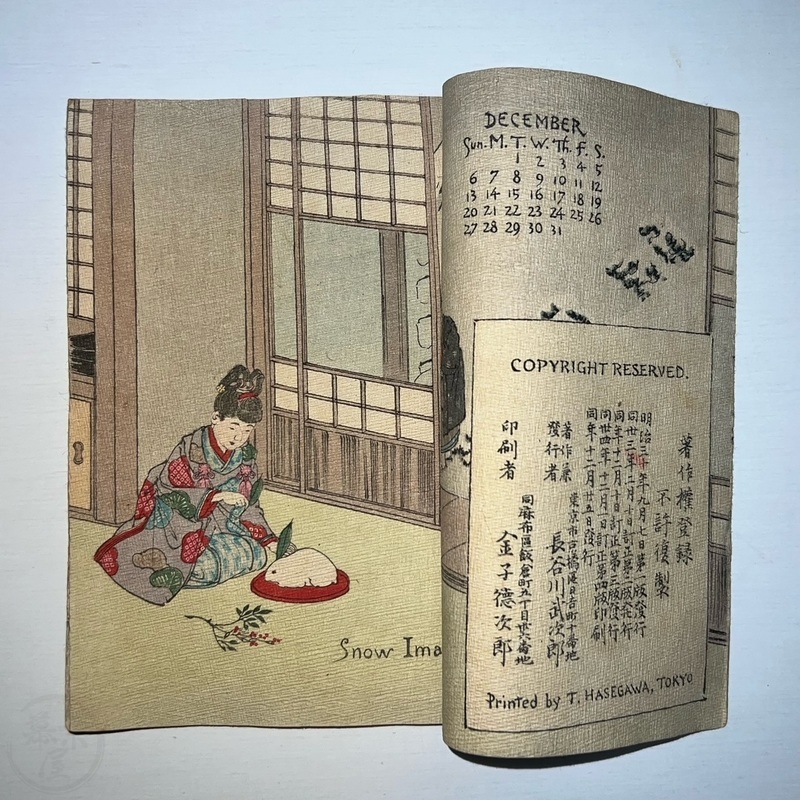 DECEMBER
Sun. M. T. W. Th. F. S.
1 2 3 4 5
6 7 8 9 10 11 12
13 14 15 16 17 18 19
20 21 22 23 24 25 26
27 28 29 30 31
COPYRIGHT RESERVED.
著作權登録
不許復製
明治三十年九月七日第一版發行
日訂正第二版発行
同年十二月十日訂正第三版發行
同卅四年十二月
日訂正第四版印刷
同年十二月廿五日發行
著作兼
發行者
東京市京橋區日吉町十番地
長谷川武次郎
印刷者
同麻布區飯倉町五丁目卅六番地
金子德次郎
Printed by T. HASEGAWA, TOKYO
Snow Ima